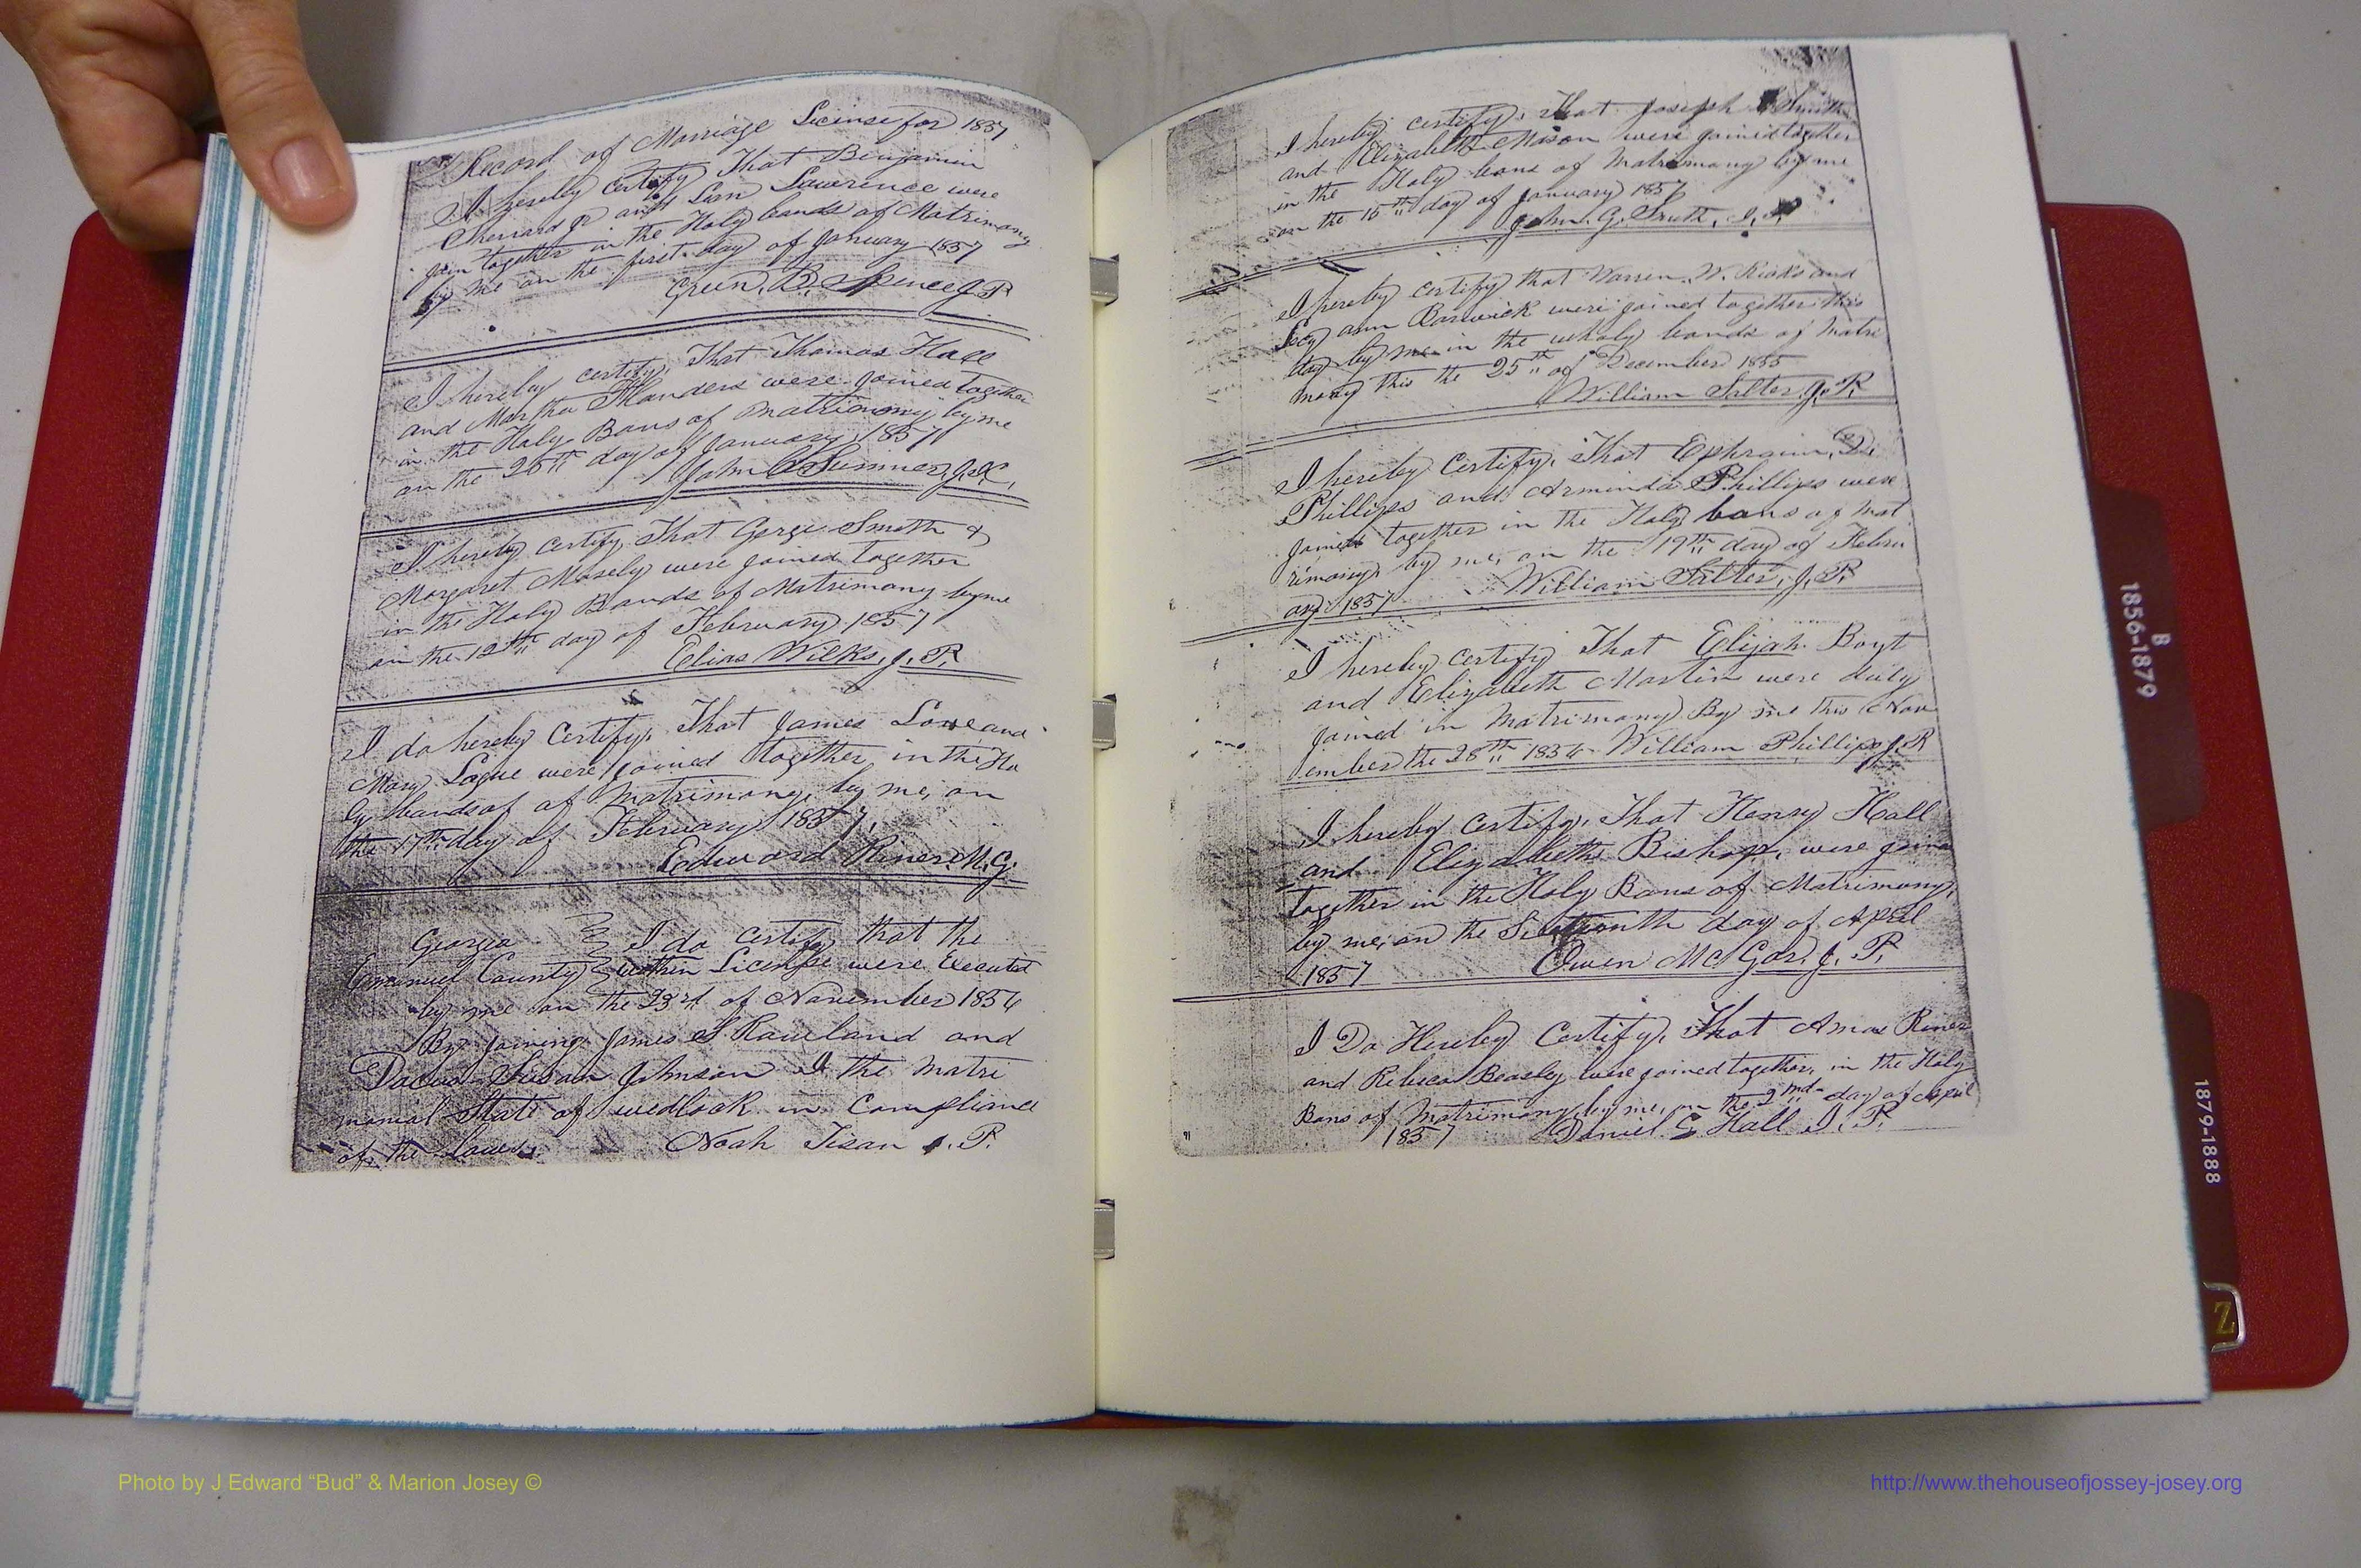 Record of Marriage License for 1857
I hereby certify That Benjamin
Sherrard Jr and Lawrence were
join together in the Holy bands of Matrimony
by me on the first day of January 1857
Green. B. Spence J. P.
I hereby certify, That Thomas Hall
and Martha Flanders were joined together
in the Holy Bans of matrimony, by me
on the 26th day of January 1857
John C Sumner, J. I. C,
I hereby certify, That Gorge Smith &
Margaret Mosely were joined together
in the Holy Bands of Matrimony by me
on the 12th day of February. 1857
Elias Wilks, J. P.
I do hereby Certify, That James Love and
Mary Logue were joined together, in the Ho
ly bands of of Matrimony, by me, on
the 17th day of February 1857,
Edward Riner. M. G.
Georgia I do certify that the
Emanuel County within License were Executed
by me on the 23rd of November 1856
By joining James S. Rowland and
Susan Johnson I the Matri
monial State of wedlock in Compliance
of the laws.
Noah Tison J. P.
I hereby certify, That Joseph Smith
and Elizabeth Mason were joined together
in the Holy bans of Matrimony by me
on the 15th day of January 1857
John. G. Smith, J. P.
I hereby certify that Warren. W. Ricks and
ann Barwick were joined together this
day by me in the wholy bands of Matri
mony this the 25th of December 1855
William Salter J. P.
I hereby Certify, That Ephraim, D.
Phillips and Arminda Phillips were
joined together in the Holy bans of Mat
rimony, by me, on the 19th day of Febru
ary 1857 William Salter, J. P.
I hereby certify That Elijah Boyt
and Elizabeth Martin were duly
joined in Matrimony By me this Nov
ember the 28th 1856 William Phillips J. P
I hereby Certify, That Henry Hall
and Elizabeth Bishop, were joine
together in the Holy Bans of Matrimony,
by me, on the day of April
1857 Owen McGar, J. P.
I Do Hereby Certify, That Amos Riner
and Rebeca Beasley were joined together, in the Holy
Bans of Matrimony, by me, on the 2nd day of April
1857 Daniel E Hall J. P.
B
1856-1879
1879-1888
Z
Photo by J Edward “Bud” & Marion Josey ©
http://www.thehouseofjossey-josey.org